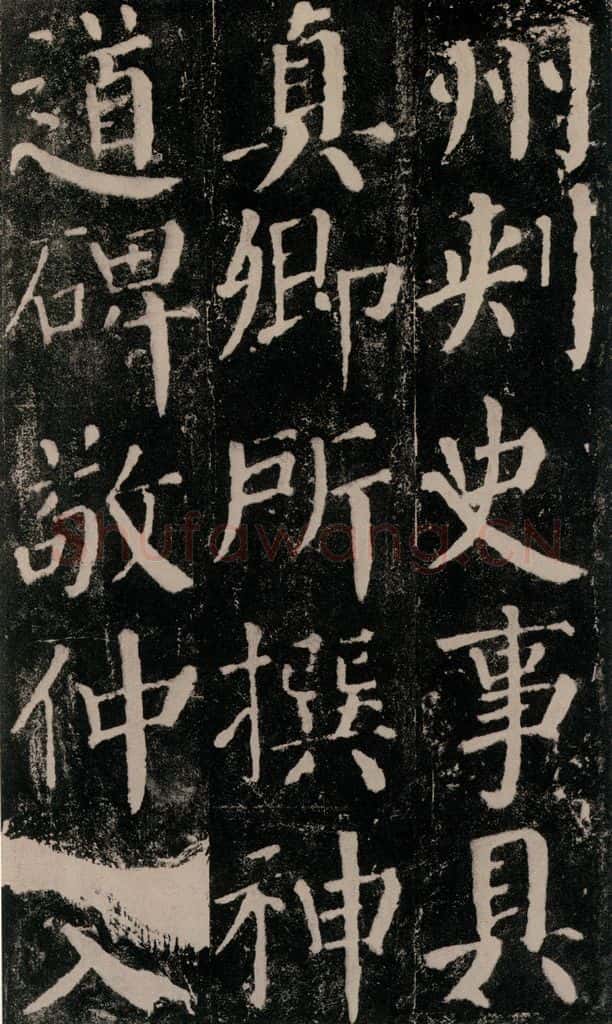 州刺史事具
真卿所撰神
道碑敬仲
Shufawang.CN